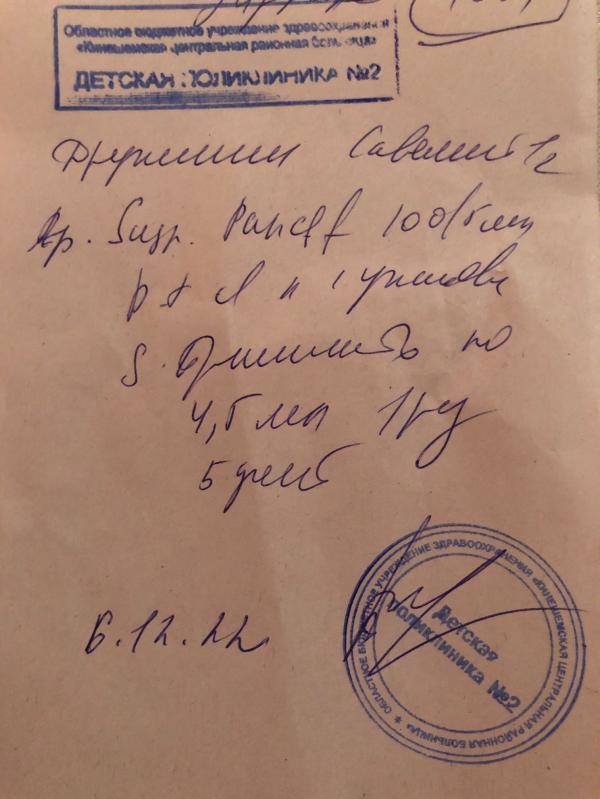 Областное бюджетное учреждение здравоохранения
«Кинешемская центральная районная больница»
ДЕТСКАЯ ПОЛИКЛИНИКА №2
Савелий
Rp. Susp. Pancef 100/5 мл
D.t.d N 1 упаковк
S. Принимать по
4,5 мл 1 р/д
5 дней
6.12.22
ОБЛАСТНОЕ БЮДЖЕТНОЕ УЧРЕЖДЕНИЕ ЗДРАВООХРАНЕНИЯ «КИНЕШЕМСКАЯ ЦЕНТРАЛЬНАЯ РАЙОННАЯ БОЛЬНИЦА»
Детская
поликлиника №2